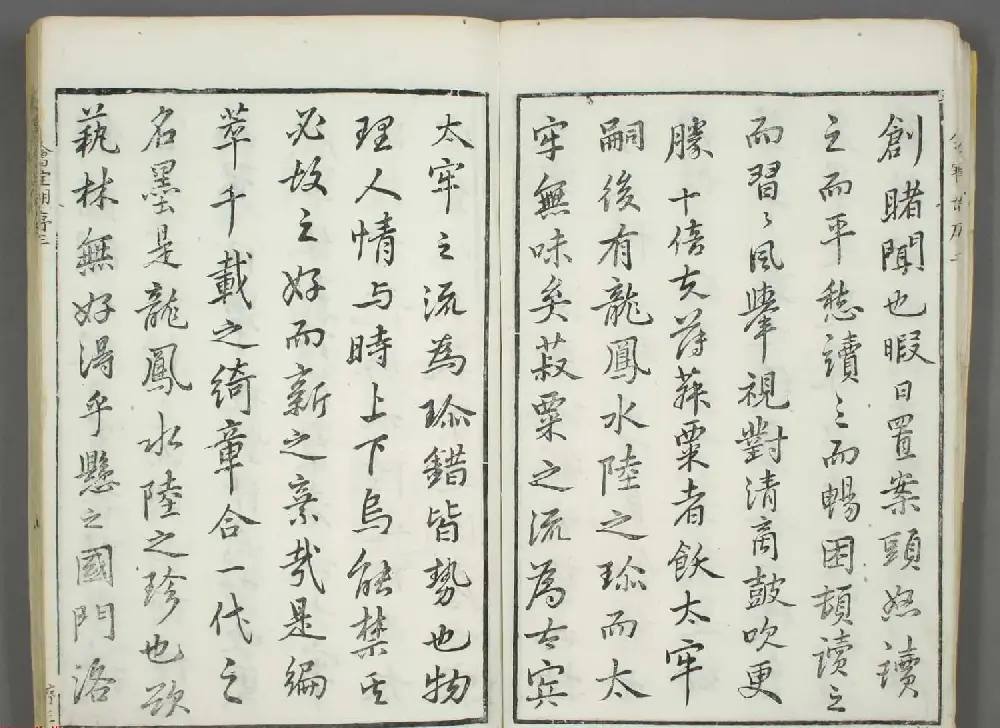 創睹聞也暇日置案頭怒讀
之而平愁讀之而暢困頓讀之
而習〻風舉視對清商鼓吹更
勝十倍夫薄菽粟者飫太牢
嗣後有龍鳳水陸之珎而太
牢無味矣菽粟之流為大賓
太牢之流為珎錯皆勢也物
理人情与時上下烏能禁其
必故之好而新之棄哉是編
萃千載之綺章合一代之
名墨是龍鳳水陸之珍也欲
藝林無好得乎懸之國門洛
序三